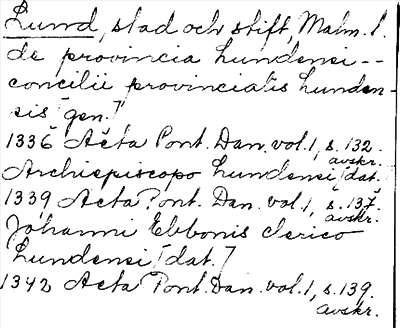 Lund, stad och stift, Malm. l.
de provincia Lundensi --
concilii provincialis Lunden-
sis [gen.]
1336 Acta Pont. Dan. vol. 1, s. 132.
avskr.
Archiepiscopo Lundensi [dat.]
1339 Acta Pont. Dan. vol. 1, s. 137.
avskr.
Johanni Ebbonis clerico
Lundensi [dat.]
1342 Acta Pont. Dan. vol. 1, s. 139.
avskr.